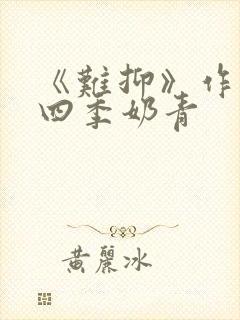 《難抑》作
四季奶青
黄麗冰